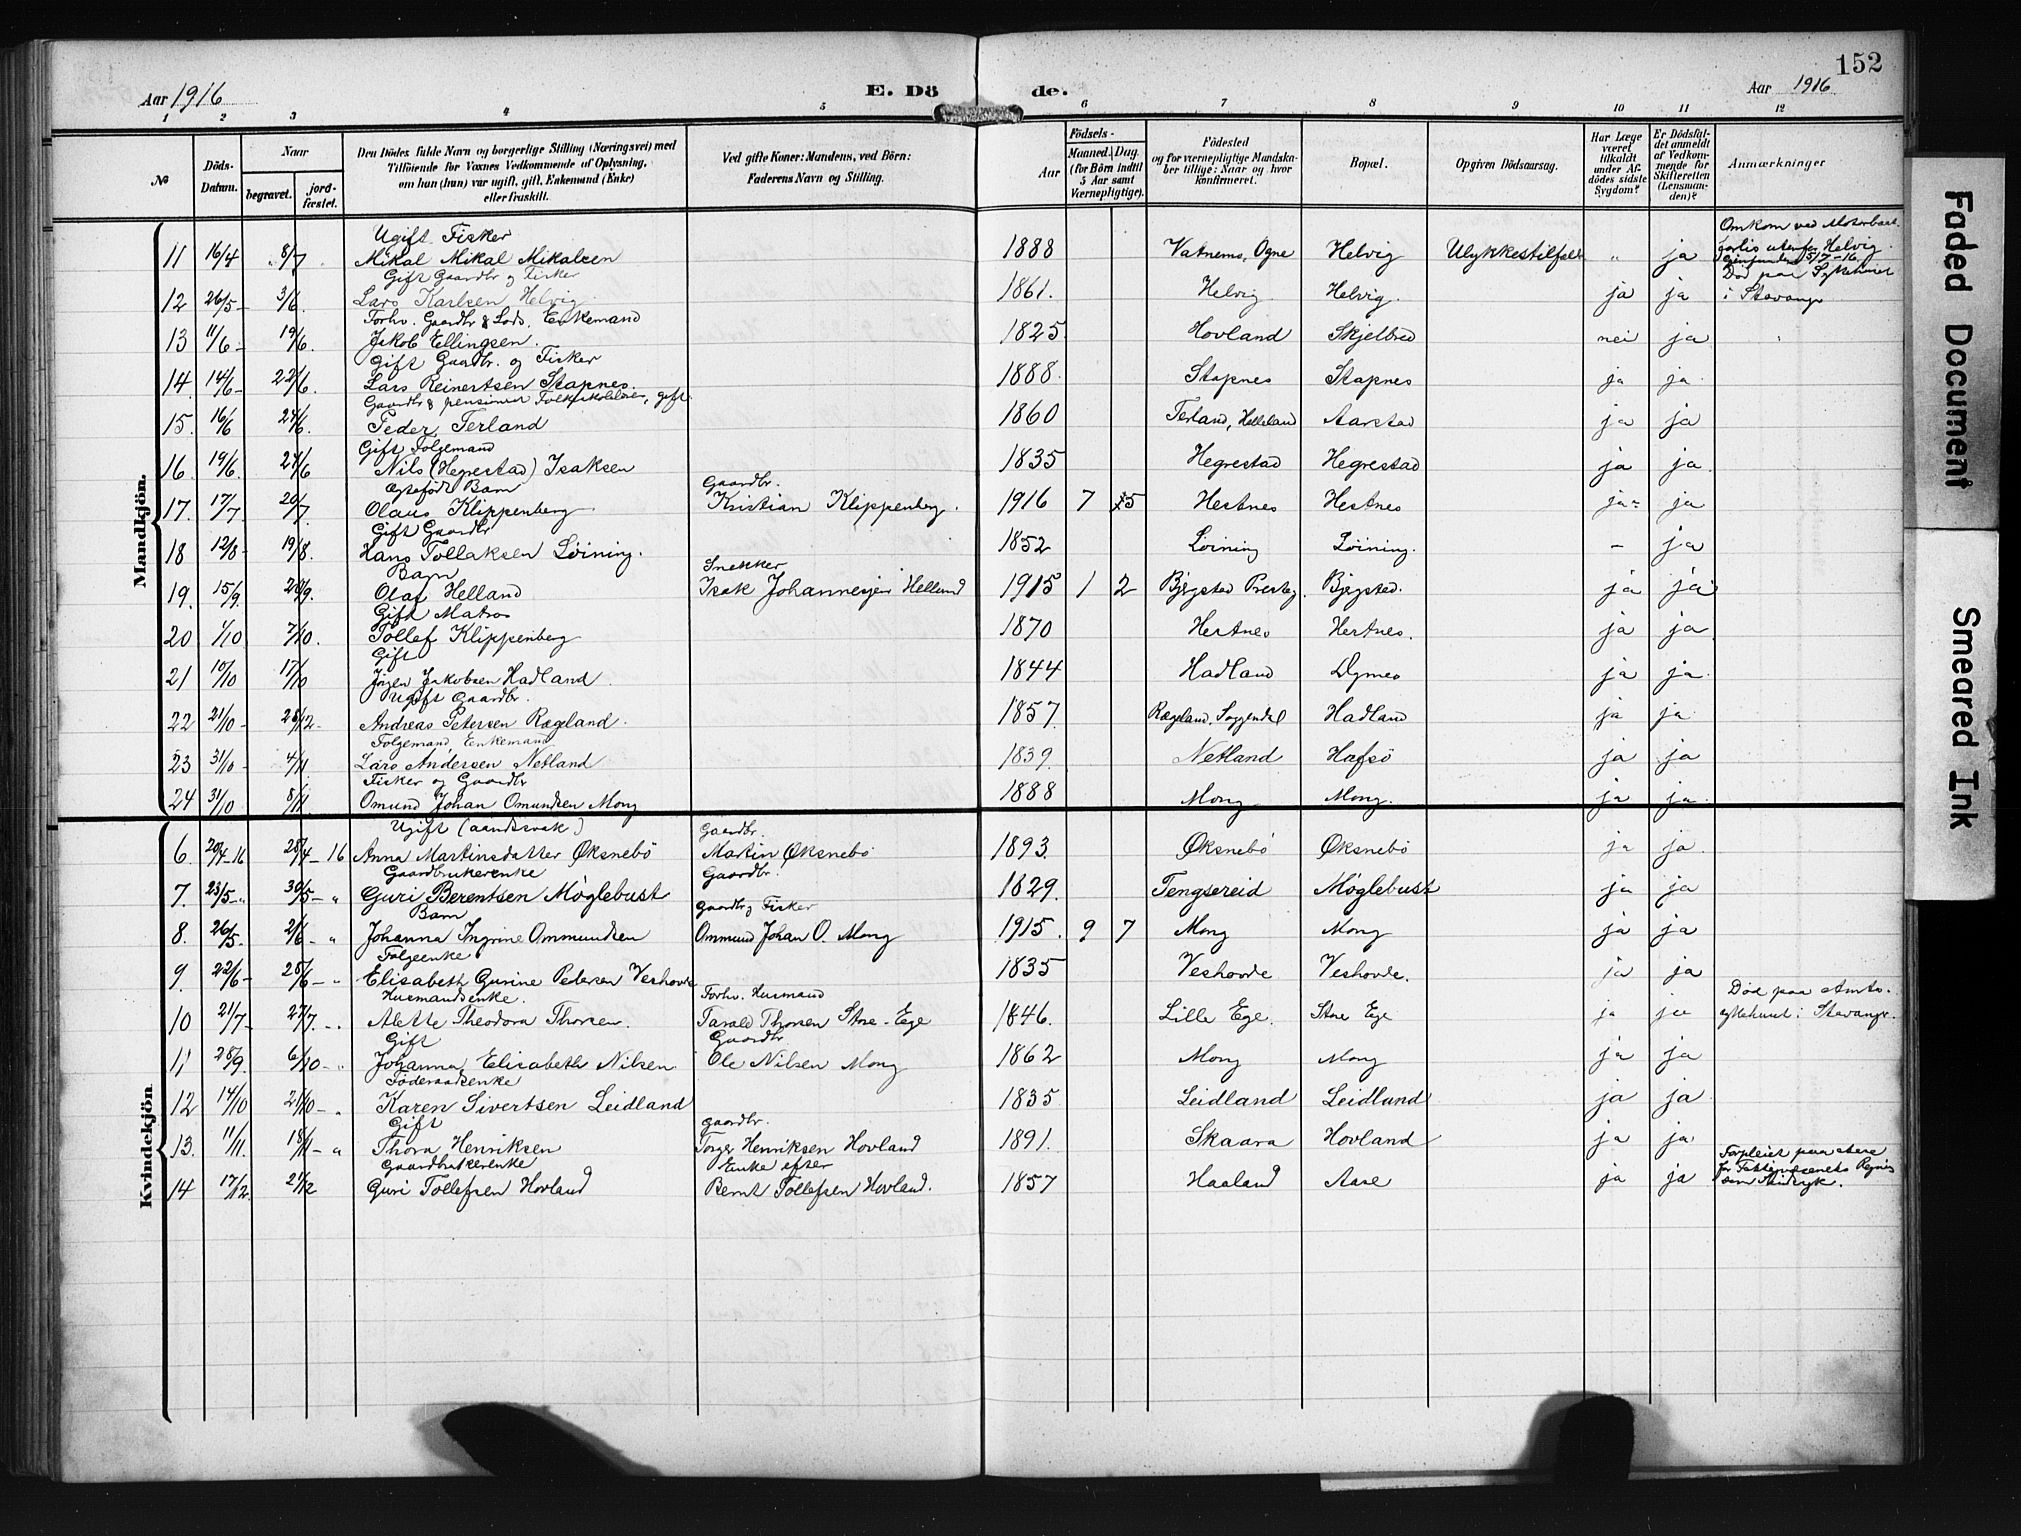 152
Aar 1916
E. Dö
de.
Aar 1916
1 2 3 4 5 6 7 8 9 10 11 12
№
Döds-
Datum.
Naar
begravet.
jord-
fæstet.
Den Dödes fulde Navn og borgerlige Stilling (Næringsvei) med
Tilföiende for Voxnes Vedkommende af Oplysning,
om han (hun) var ugift, gift, Enkemand (Enke)
eller fraskilt.
Ved gifte Koner: Mandens, ved Börn:
Faderens Navn og Stilling.
Födsels-
Aar
Maaned. Dag.
(for Börn indtil
5 Aar samt
Værnepligtige).
Födested
og for værnepligtige Mandska-
ber tillige: Naar og hvor
konfirmeret.
Bopæl.
Opgiven Dödsaarsag.
Har Læge
været
tilkaldt
under Af-
dödes sidste
Sygdom?
Er Dödsfal-
det anmeldt
af Vedkom-
mende for
Skifteretten
(Lensman-
den)?
Anmærkninger
Mandkjön.
Ugift Fisker
11 16/4 " 8/7 Mikal Mikal Mikalsen 1888 Vatnemo, Ogne Helvig Ulykkestilfælde " ja
Omkom ved Motorbaat
forlis utenfor Helvig.
5/7-16
Gift Gaardbr og Fisker
12 26/5- 3/6. Lars Karlsen Helvig. 1861. Helvig. Helvig. ja ja
Död paa Sykehuset
i Stavanger
Forhv. Gaardbr & Lods. Enkemand
13 11/6- 19/6. Jakob Ellingsen. 1825 Hovland Skjelbred nei ja
Gift Gaardbr. og Fisker
14. 14/6- 22/6. Lars Reinertsen Stapnes. 1888. Stapnes Stapnes ja ja
Gaardbr & pensioneret Folkeskolelærer, gift.
15. 16/6 24/6. Peder Terland 1860 Terland, Helleland Aarstad ja ja
Gift Folgemand
16. 19/6. 24/6 Nils (Hegrestad) Isaksen 1835 Hegrestad Hegrestad ja ja.
Ægtefödt Barn
Gaardbr.
17. 17/7. 20/7. Olaus Klippenberg Kristian Klippenberg. 1916 7 5 Hestnes Hestnes ja ja
Gift Gaardbr
18 12/8- 19/8. Hans Tollaksen Löining. 1852 Löining Löining. – ja
Barn
Snekker
19. 15/9. 20/9. Olaf Helland Isak Johannesen Helland 1915 1 2 Bjegstad Presteg. Bjegstad. ja ja
Gift Matros
20 1/10 7/10. Tollef Klippenberg 1870 Hestnes Hestnes. ja ja
Gift
21 10/10 17/10 Jörgen Jakobsen Hadland. 1844 Hadland Dymes ja ja.
Ugift Gaardbr.
22 21/10- 28/12. Andreas Petersen Rægeland. 1857. Rægeland, Soggendal Hadland ja ja.
Folgemand, Enkemand
23 31/10- 4/11. Lars Andersen Netland 1839. Netland Hafsö ja ja
Fisker og Gaardbr
24 31/10 8/11. Omund Johan Omundsen Mong 1888 Mong Mong. ja ja.
Kvindekjön
Ugift (aandssvak)
Gaardbr.
6. 20/4-16 28/4-16 Anna Martinsdatter Øksnebö Martin Øksnebö 1893. Øksnebö Øksnebö ja ja.
Gaardbrukerenke
Gaardbr.
7. 23/5-" 30/5-" Guri Berentsen Möglebust 1829. Tengsereid Möglebust ja ja
Barn
Gaardbr og Fisker
8. 26/5- 2/6-" Johanna Ingrine Ommundsen Ommund Johan O. Mong 1915. 9 7 Mong Mong ja ja
Folgeenke
9. 22/6- 28/6-" Elisabeth Gurine Pedersen Veshovde 1835 Veshovde Veshovde. ja ja
Husmandsenke.
Forhv. Husmand
10 21/7- 27/7-" Alette Theodora Thorsen. Tarald Thorsen Store-Ege 1846. Lille Ege. Store Ege ja ja
Död paa Amts-
sykehuset i Stavanger.
Gift
Gaardbr
11 28/9. 6/10-" Johanna Elisabeth Nilsen Ole Nilsen Mong 1862 Mong Mong ja ja
Föderaadsenke
12 14/10 21/10-" Karen Sivertsen Leidland 1835 Leidland Leidland ja ja
Gift
Gaardbr.
13. 11/11. 18/11-" Thora Henriksen Torger Henriksen Hovland 1891. Skaara Hovland ja ja
Gaardbrukerenke
Enke efter
14 17/12. 27/12 Guri Tollefsen Hovland Bernt Tollefsen Hovland. 1857 Haaland Aase ja ja
Forpleiet paa Aase
for Fattigvæsenets Regning
som Sindssyk.
Faded Document
Smeared Ink